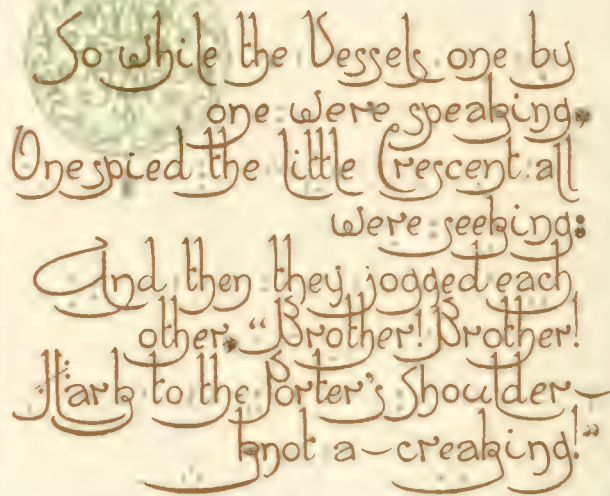 So while the Vessels one by
one were speaking,
One spied the little Crescent all
were seeking:
And then they jogged each
other, "Brother! Brother!
Hark to the Porter's Shoulder-
knot a-creaking!"